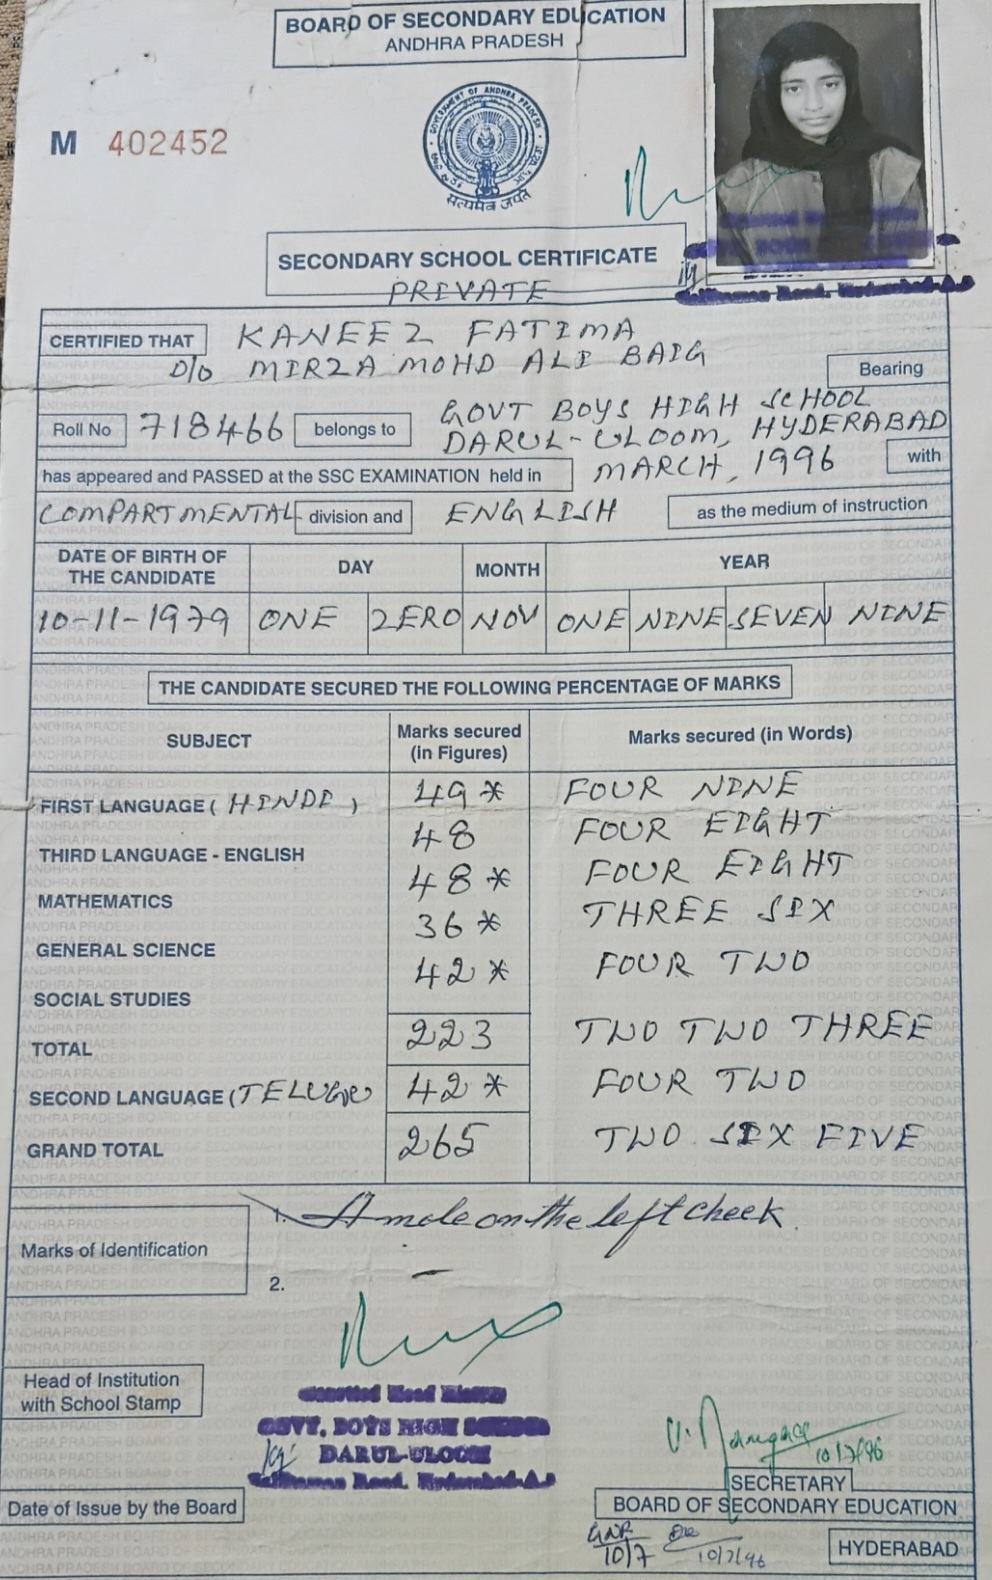 BOARD OF SECONDARY EDUCATION
ANDHRA PRADESH
GOVERNMENT OF ANDHRA PRADESH
सत्यमेव जयते
M 402452
SECONDARY SCHOOL CERTIFICATE
PRIVATE
CERTIFIED THAT KANEEZ FATIMA
D/o MIRZA MOHD ALI BAIG
Bearing
Roll No 718466 belongs to GOVT BOYS HIGH SCHOOL
DARUL-ULOOM, HYDERABAD
has appeared and PASSED at the SSC EXAMINATION held in MARCH, 1996 with
COMPARTMENTAL division and ENGLISH as the medium of instruction
DATE OF BIRTH OF THE CANDIDATE DAY MONTH YEAR
10-11-1979 ONE ZERO NOV ONE NINE SEVEN NINE
THE CANDIDATE SECURED THE FOLLOWING PERCENTAGE OF MARKS
SUBJECT Marks secured (in Figures) Marks secured (in Words)
FIRST LANGUAGE (HINDI) 49* FOUR NINE
THIRD LANGUAGE - ENGLISH 48 FOUR EIGHT
MATHEMATICS 48* FOUR EIGHT
GENERAL SCIENCE 36* THREE SIX
SOCIAL STUDIES 42* FOUR TWO
TOTAL 223 TWO TWO THREE
SECOND LANGUAGE (TELUGU) 42* FOUR TWO
GRAND TOTAL 265 TWO SIX FIVE
Marks of Identification
1. A mole on the left cheek.
2. —
Head of Institution
with School Stamp
GOVT. BOYS HIGH SCHOOL
DARUL-ULOOM
Road, Hyderabad-A.P
10/7/96
SECRETARY
BOARD OF SECONDARY EDUCATION
HYDERABAD
Date of Issue by the Board
10/7
10/7/96